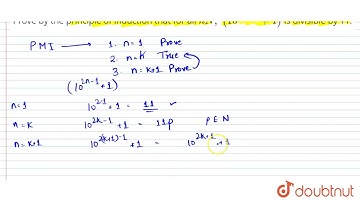 Prove by the principle of induction that for all n∈N, (10²ⁿ⁻¹ + 1) is divisible by 11.
PMI → 1. n=1 Prove
2. n=k True
3. n=k+1 Prove
(10²ⁿ⁻¹+1)
n=1 10²·¹⁻¹+1 = 11 ✓
n=k 10²ᵏ⁻¹+1 = 11p P∈N
n=k+1 10²⁽ᵏ⁺¹⁾⁻¹+1 = 10²ᵏ⁺¹+1
doubtnut